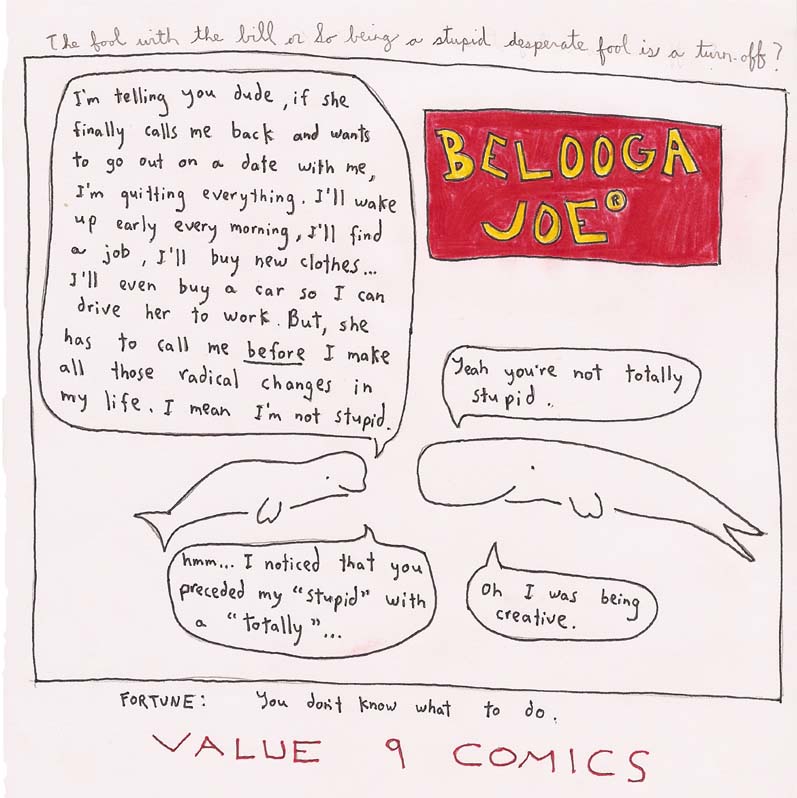 The fool with the bill or So being a stupid desperate fool is a turn-off?
I'm telling you dude, if she
finally calls me back and wants
to go out on a date with me,
I'm quitting everything. I'll wake
up early every morning, I'll find
a job, I'll buy new clothes...
I'll even buy a car so I can
drive her to work. But, she
has to call me before I make
all those radical changes in
my life. I mean I'm not stupid.
BELOOGA
JOE®
Yeah you're not totally
stupid.
hmm... I noticed that you
preceded my "stupid" with
a "totally"...
Oh I was being
creative.
FORTUNE: You don't know what to do.
VALUE 9 COMICS